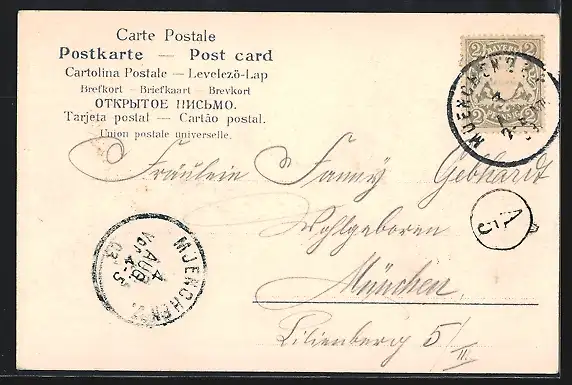 Carte Postale
Postkarte — Post card
Cartolina Postale — Levelező-Lap
Brefkort — Briefkaart — Brevkort
ОТКРЫТОЕ ПИСЬМО.
Tarjeta postal — Cartão postal.
Union postale universelle.
2 BAYERN 2
2 PFENNIG 2
MUENCHEN
Fräulein Fanny Gebhardt
Wohlgeboren
A
5
München.
Lilienberg 5/III
MUENCHEN
4
AUG
4-5
03